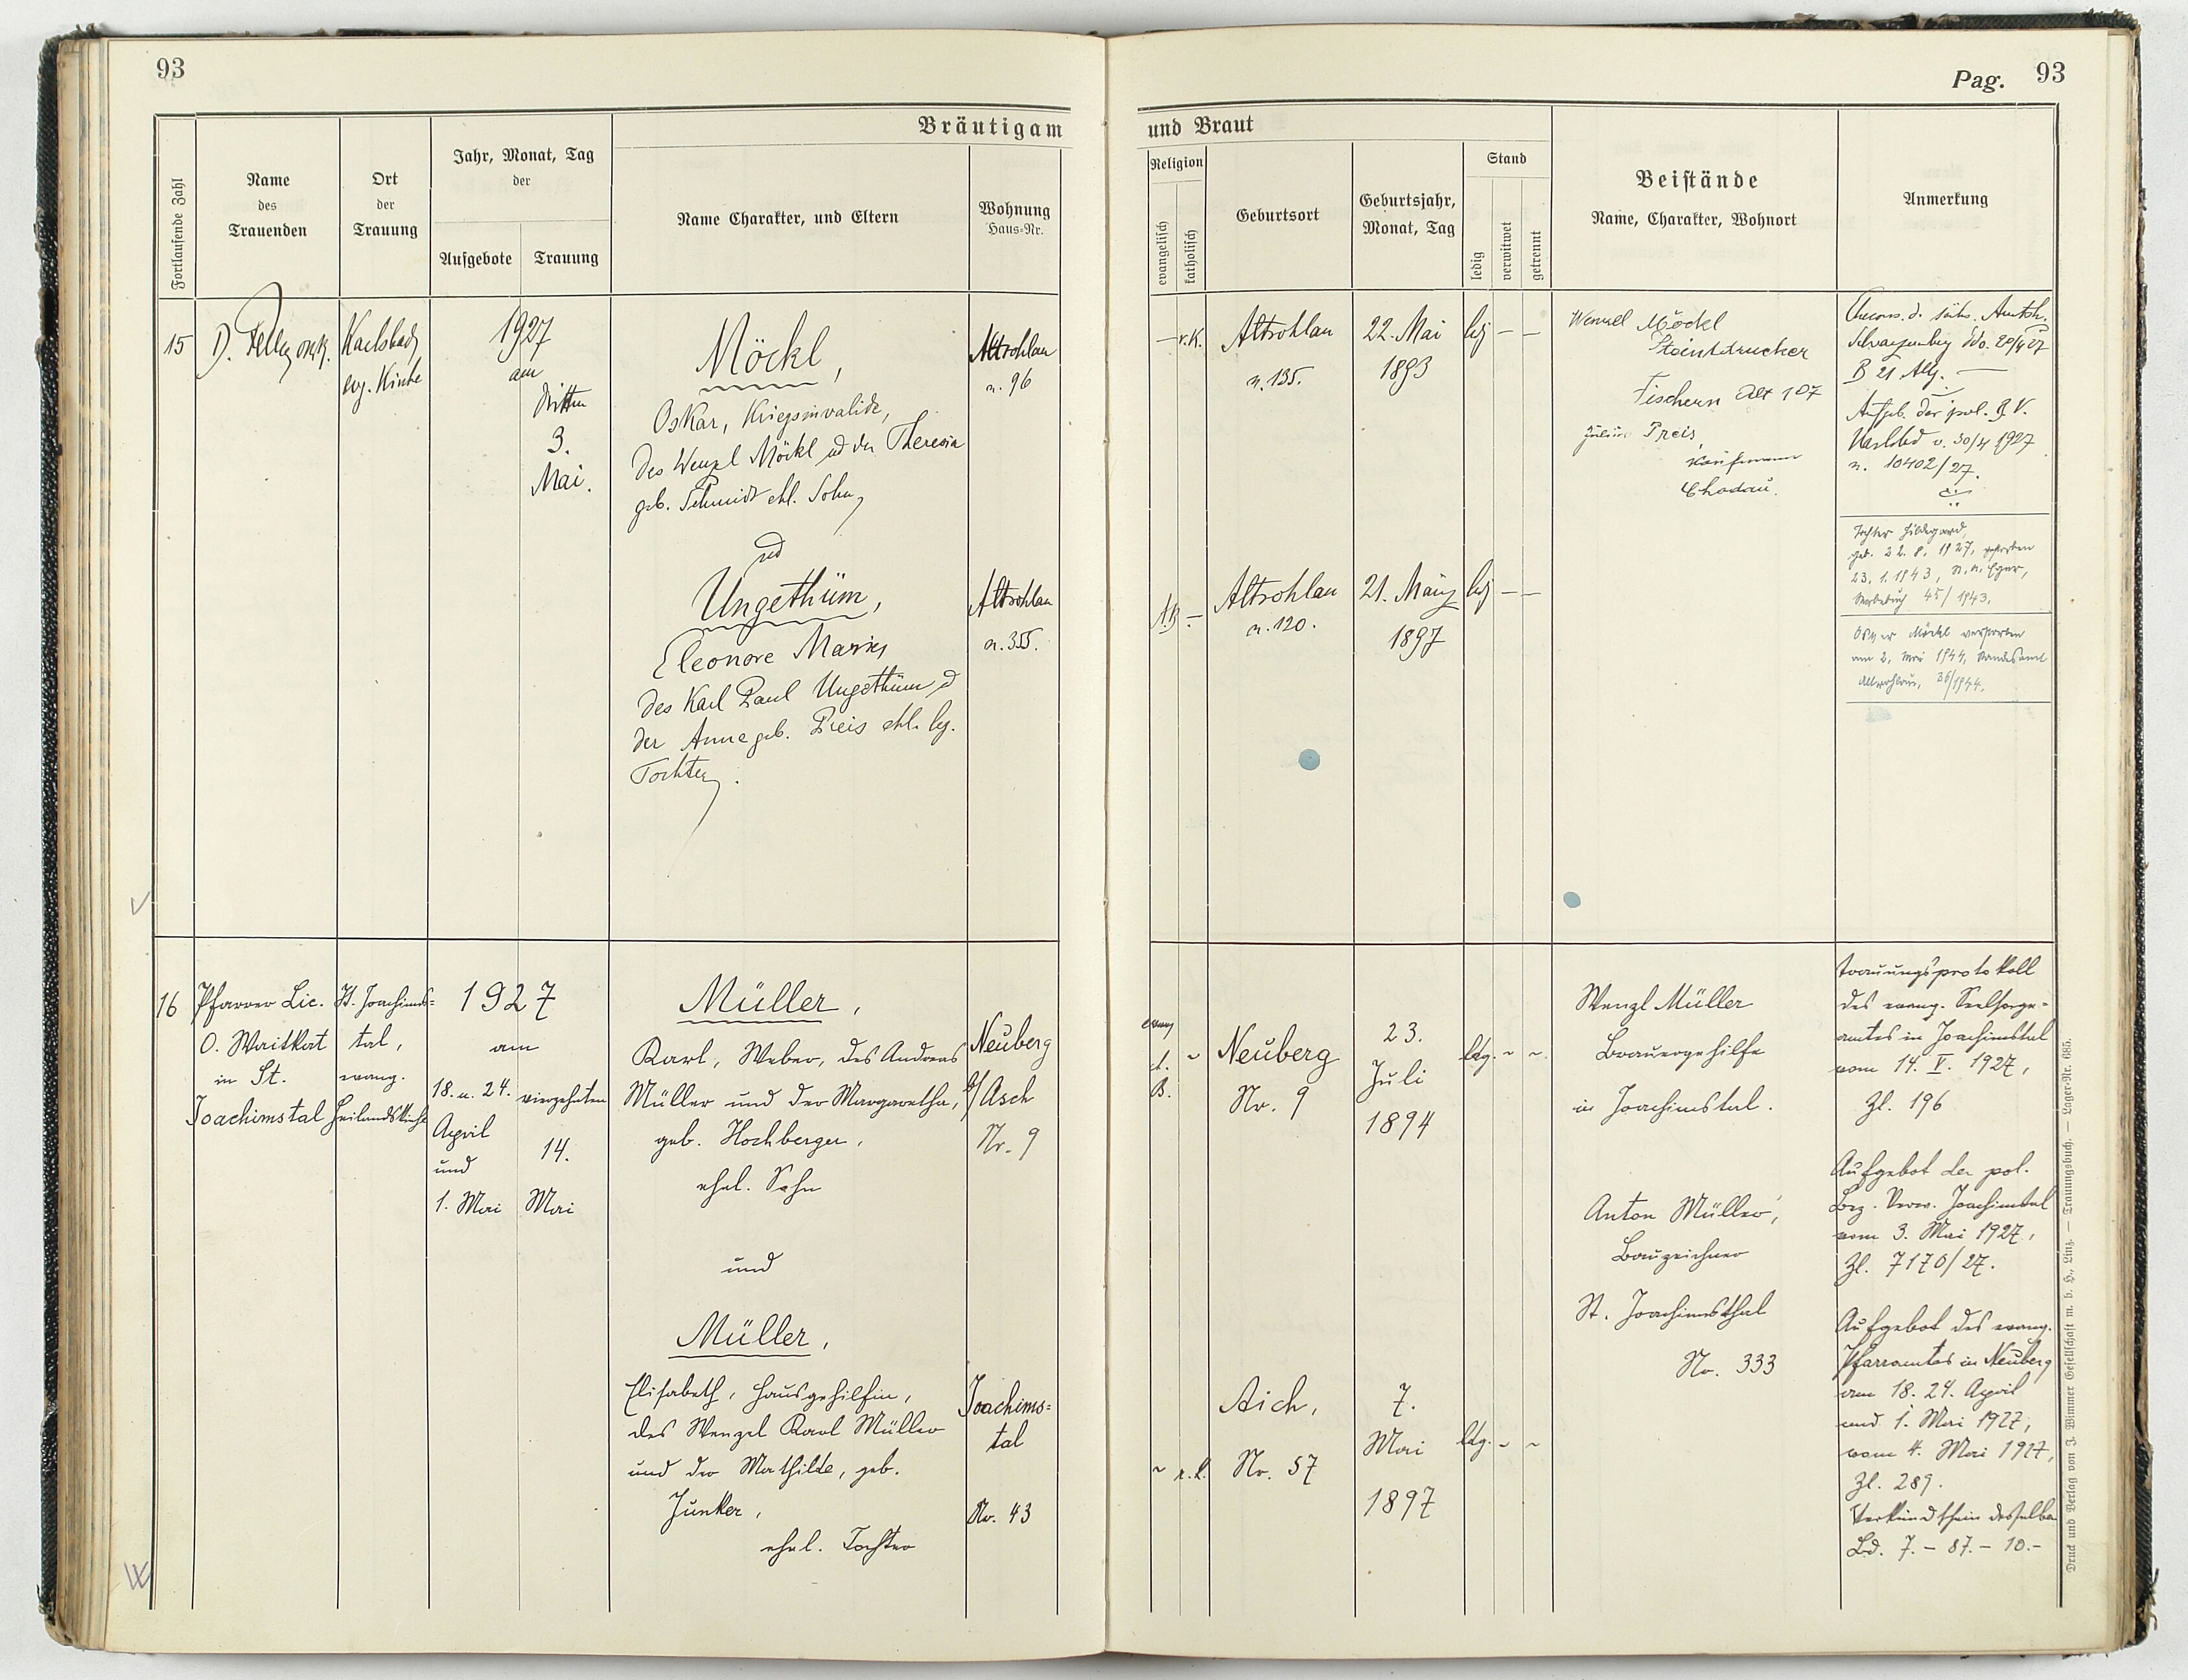 93
Bräutigam
Fortlaufende Zahl
Name
des
Trauenden
Ort
der
Trauung
Jahr, Monat, Tag
der
Aufgebote
Trauung
Name Charakter, und Eltern
Wohnung
Haus-Nr.
15
Karlsbad
evg. Kirche
1927
am
dritten
3.
Mai.
Möckl,
Oskar, Kriegsinvalide,
des Wenzl Möckl ud der Theresia
geb. Schmidt ehl. Sohn
ud
Ungethüm,
Eleonore Marie,
des Karl Paul Ungethüm d
der Anna geb. Preis ehl. lg.
Tochter.
Altrohlau
n. 96
Altrohlau
n. 355.
16
Pfarrer Lic.
O. Waitkat
in St.
Joachimstal
St. Joachims=
tal,
evang.
Heilandskirche
1927
am
18. u. 24.
April
und
1. Mai
vierzehnten
14.
Mai
Müller,
Karl, Weber, des Andreas
Müller und der Margaretha,
geb. Hochberger,
ehel. Sohn
und
Müller,
Elisabeth, Hausgehilfin,
des Wenzel Karl Müller
und der Mathilde, geb.
Junker,
ehel. Tochter
Neuberg
b/Asch
Nr. 9
Joachims=
tal
Nr. 43
Pag. 93
und Braut
Religion
evangelisch
katholisch
Geburtsort
Geburtsjahr,
Monat, Tag
Stand
ledig
verwitwet
getrennt
Beistände
Name, Charakter, Wohnort
Anmerkung
— r.K.
Altrohlau
n. 135.
22. Mai
1893
ldg — —
Wenzel Möckl
Steindrucker
Fischern Alt 107
Julius Preis,
Kaufmann
Chodau.
Schwarzenberg ddo. 20/4 27
B 21 Allg. —
Aufgeb. der pol. B. V.
Karlsbd v. 30/4 1927
n. 10402/27.
Tochter Hildegard,
geb. 22. 8. 1927, gestorben
23. 1. 1943, St. A. Eger,
Sterbebuch 45/1943.
Oskar Möckl verstorben
am 2. Mai 1944, Standesamt
Altrohlau, 36/1944.
A.B —
Altrohlau
n. 120.
21. März
1897
ldg — —
evang
A. ~
B.
Neuberg
Nr. 9
23.
Juli
1894
ldg. ~ ~
Wenzl Müller
Brauergehilfe
in Joachimstal.
Anton Müller,
Bauzeichner
St. Joachimsthal
No. 333
~ r.k.
Aich,
Nr. 57
7.
Mai
1897
ldg. ~ ~
Trauungsprotokoll
des evang. Seelsorge=
amtes in Joachimstal
vom 14. V. 1927,
Zl. 196
Aufgebot der pol.
Bez. Verw. Joachimstal
vom 3. Mai 1927,
Zl. 7170/27.
Aufgebot des evang.
Pfarramtes in Neuberg
am 18. 24. April
und 1. Mai 1927,
vom 4. Mai 1927,
Zl. 289.
Verkündschein desselben
Bd. 7. – 87. – 10. –
Druck und Verlag von J. Wimmer Gesellschaft m. b. H., Linz. — Trauungsbuch. — Lager-Nr. 685.